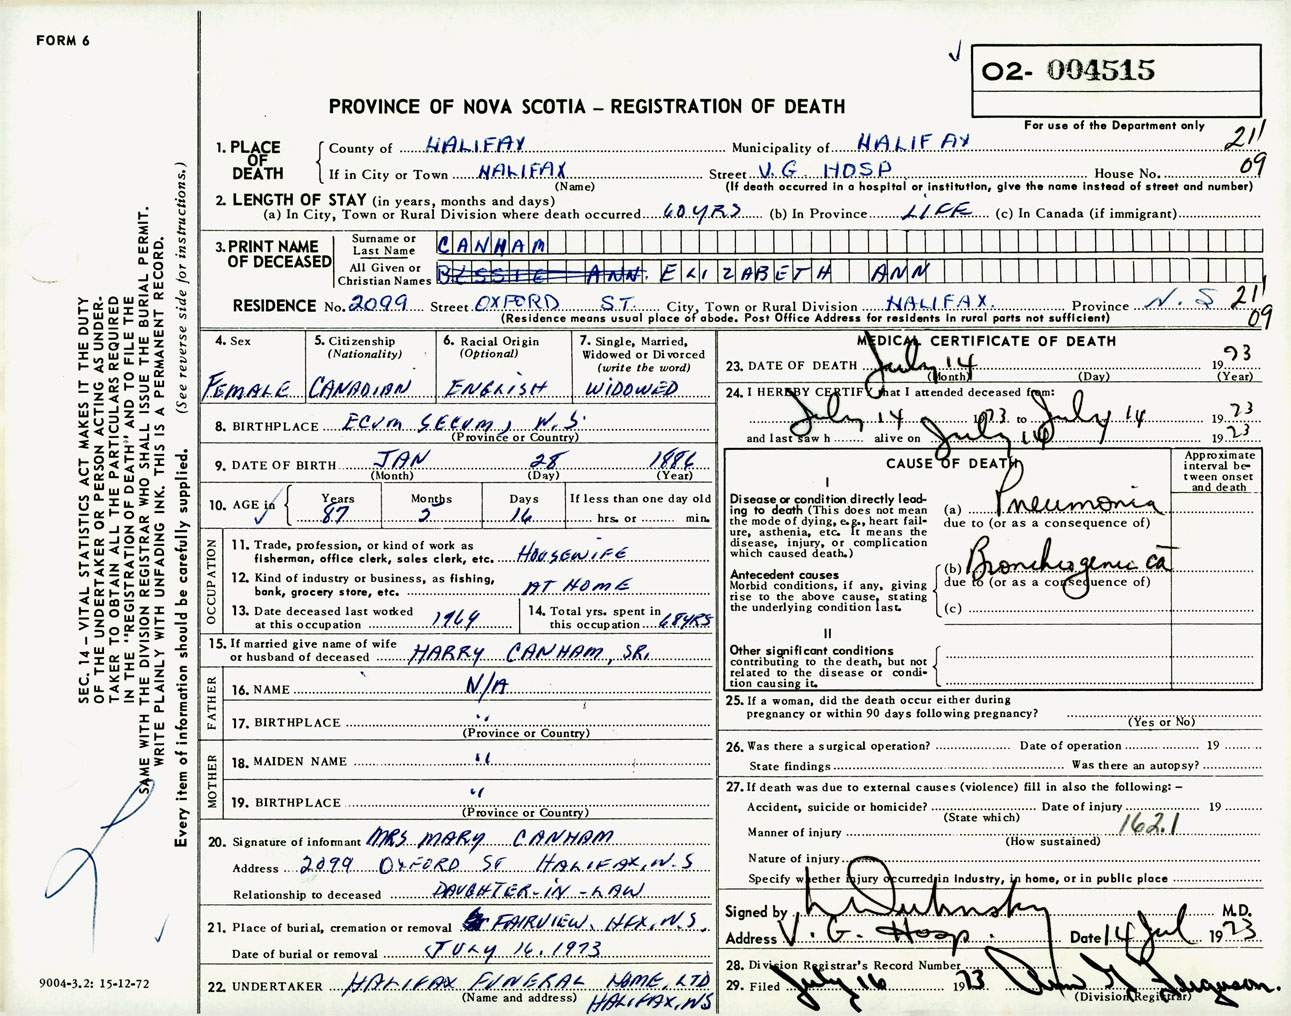 FORM 6
O2- 004515
PROVINCE OF NOVA SCOTIA – REGISTRATION OF DEATH
For use of the Department only
21
09
1. PLACE OF DEATH
County of HALIFAX Municipality of HALIFAX
If in City or Town HALIFAX Street V.G. HOSP House No.
(Name) (If death occurred in a hospital or institution, give the name instead of street and number)
2. LENGTH OF STAY (in years, months and days)
(a) In City, Town or Rural Division where death occurred 60 YRS (b) In Province LIFE (c) In Canada (if immigrant)
3. PRINT NAME OF DECEASED
Surname or Last Name CANHAM
All Given or Christian Names BESSIE ANN. ELIZABETH ANN
RESIDENCE No. 2099 Street OXFORD ST. City, Town or Rural Division HALIFAX. Province N.S
21
09
(Residence means usual place of abode. Post Office Address for residents in rural parts not sufficient)
4. Sex
FEMALE
5. Citizenship
(Nationality)
CANADIAN
6. Racial Origin
(Optional)
ENGLISH
7. Single, Married,
Widowed or Divorced
(write the word)
WIDOWED
8. BIRTHPLACE ECUM SECUM, N.S.
(Province or Country)
9. DATE OF BIRTH JAN 28 1886
(Month) (Day) (Year)
10. AGE in
Years Months Days If less than one day old
87 5 16 hrs. or min.
OCCUPATION
11. Trade, profession, or kind of work as
fisherman, office clerk, sales clerk, etc. HOUSEWIFE
12. Kind of industry or business, as fishing,
bank, grocery store, etc. AT HOME
13. Date deceased last worked
at this occupation 1969
14. Total yrs. spent in
this occupation 68 YRS
15. If married give name of wife
or husband of deceased HARRY CANHAM, SR.
FATHER
16. NAME N/A
17. BIRTHPLACE "
(Province or Country)
MOTHER
18. MAIDEN NAME "
19. BIRTHPLACE "
(Province or Country)
20. Signature of informant MRS MARY CANHAM
Address 2099 OXFORD ST HALIFAX, N.S
Relationship to deceased DAUGHTER-IN-LAW
21. Place of burial, cremation or removal FAIRVIEW. HFX. N.S.
Date of burial or removal JULY 16. 1973
22. UNDERTAKER HALIFAX FUNERAL HOME, LTD
(Name and address) HALIFAX, NS
MEDICAL CERTIFICATE OF DEATH
23. DATE OF DEATH July 14 1973
(Month) (Day) (Year)
24. I HEREBY CERTIFY that I attended deceased from:
July 14 1973 to July 14 1973
and last saw h alive on July 14 1973
CAUSE OF DEATH
Approximate
interval be-
tween onset
and death
I
Disease or condition directly lead-
ing to death (This does not mean
the mode of dying, e.g., heart fail-
ure, asthenia, etc. It means the
disease, injury, or complication
which caused death.)
(a) Pneumonia
due to (or as a consequence of)
Antecedent causes
Morbid conditions, if any, giving
rise to the above cause, stating
the underlying condition last.
(b) Bronchogenic ca
due to (or as a consequence of)
(c)
II
Other significant conditions
contributing to the death, but not
related to the disease or condi-
tion causing it.
25. If a woman, did the death occur either during
pregnancy or within 90 days following pregnancy?
(Yes or No)
26. Was there a surgical operation? Date of operation 19
State findings Was there an autopsy?
27. If death was due to external causes (violence) fill in also the following: –
Accident, suicide or homicide? Date of injury 19
(State which)
Manner of injury 162.1
(How sustained)
Nature of injury
Specify whether injury occurred in industry, in home, or in public place
Signed by M.D.
Address V. G. Hosp. Date 14 Jul 1973
28. Division Registrar's Record Number
29. Filed July 16 1973 Ferguson.
(Division Registrar)
SEC. 14 – VITAL STATISTICS ACT MAKES IT THE DUTY
OF THE UNDERTAKER OR PERSON ACTING AS UNDER-
TAKER TO OBTAIN ALL THE PARTICULARS REQUIRED
IN THE "REGISTRATION OF DEATH" AND TO FILE THE
SAME WITH THE DIVISION REGISTRAR WHO SHALL ISSUE THE BURIAL PERMIT.
WRITE PLAINLY WITH UNFADING INK. THIS IS A PERMANENT RECORD.
Every item of information should be carefully supplied. (See reverse side for instructions.)
9004-3.2: 15-12-72